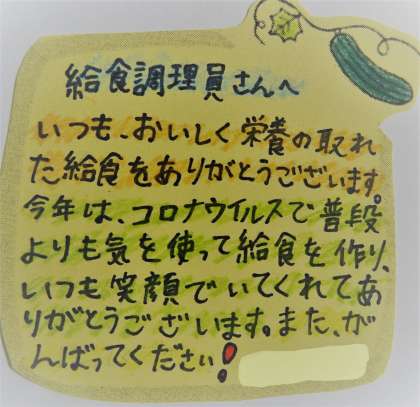 給食調理員さんへ
いつも、おいしく栄養の取れ
た給食をありがとうございます。
今年は、コロナウイルスで普段
よりも気を使って給食を作り、
いつも笑顔でいてくれてあ
りがとうございます。また、が
んばってください!